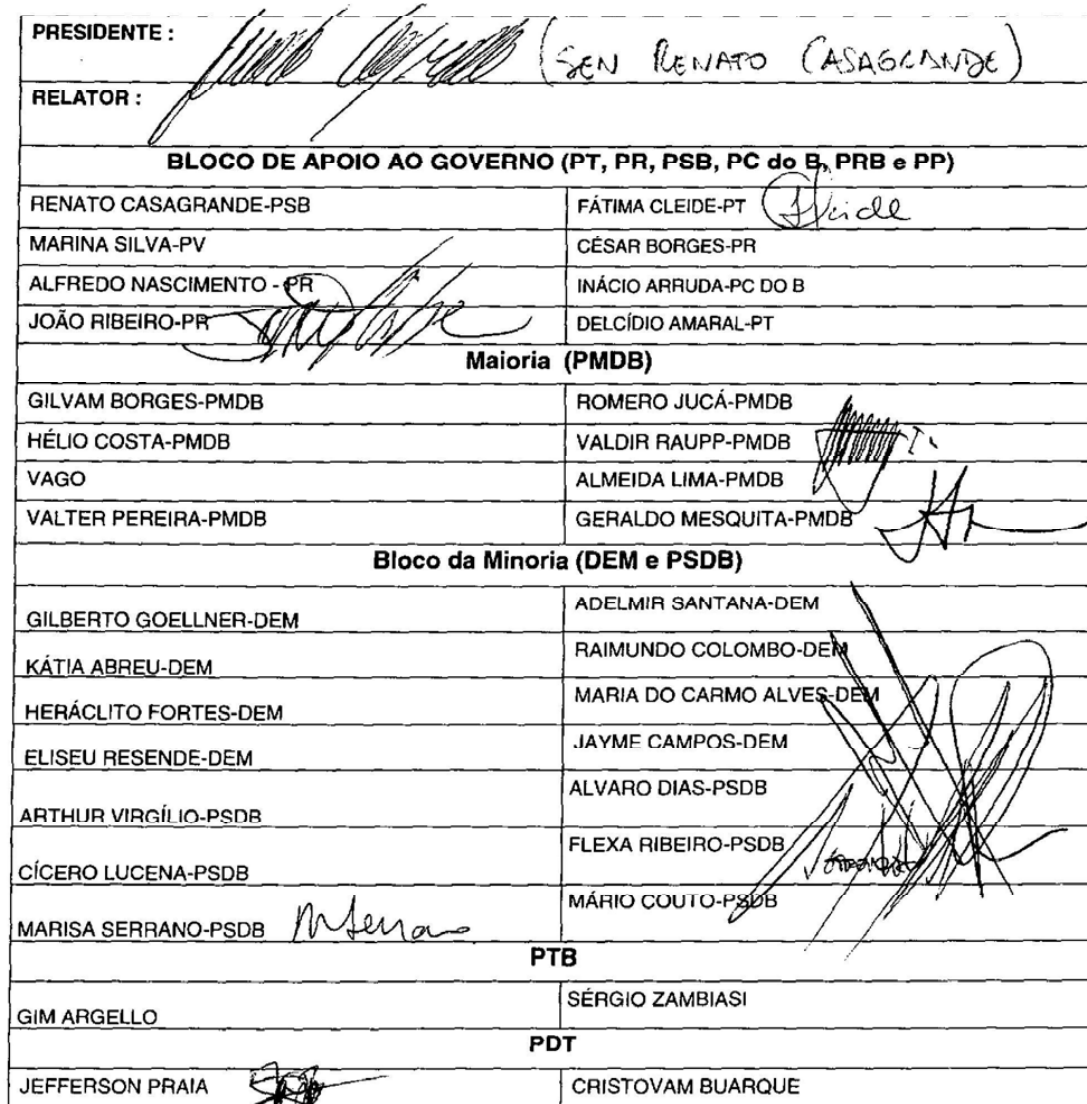 PRESIDENTE : (SEN RENATO CASAGRANDE)
RELATOR :
BLOCO DE APOIO AO GOVERNO (PT, PR, PSB, PC do B, PRB e PP)
RENATO CASAGRANDE-PSB FÁTIMA CLEIDE-PT
MARINA SILVA-PV CÉSAR BORGES-PR
ALFREDO NASCIMENTO - PR INÁCIO ARRUDA-PC DO B
JOÃO RIBEIRO-PR DELCÍDIO AMARAL-PT
Maioria (PMDB)
GILVAM BORGES-PMDB ROMERO JUCÁ-PMDB
HÉLIO COSTA-PMDB VALDIR RAUPP-PMDB
VAGO ALMEIDA LIMA-PMDB
VALTER PEREIRA-PMDB GERALDO MESQUITA-PMDB
Bloco da Minoria (DEM e PSDB)
GILBERTO GOELLNER-DEM ADELMIR SANTANA-DEM
KÁTIA ABREU-DEM RAIMUNDO COLOMBO-DEM
HERÁCLITO FORTES-DEM MARIA DO CARMO ALVES-DEM
ELISEU RESENDE-DEM JAYME CAMPOS-DEM
ARTHUR VIRGÍLIO-PSDB ALVARO DIAS-PSDB
CÍCERO LUCENA-PSDB FLEXA RIBEIRO-PSDB
MARISA SERRANO-PSDB MÁRIO COUTO-PSDB
PTB
GIM ARGELLO SÉRGIO ZAMBIASI
PDT
JEFFERSON PRAIA CRISTOVAM BUARQUE